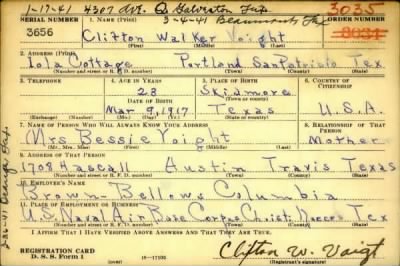 1-17-41 4307 Ave. Q. Galveston Tex.
3-4-41 Beaumont Tex
3035
SERIAL NUMBER 1. NAME (Print) ORDER NUMBER
3656 Clifton Walker Voight 3034
(First) (Middle) (Last)
2. ADDRESS (Print)
Iola Cottage Portland San Patricio Tex
(Number and street or R. F. D. number) (Town) (County) (State)
3. TELEPHONE 4. AGE IN YEARS 5. PLACE OF BIRTH 6. COUNTRY OF CITIZENSHIP
23 Skidmore
(Town or county)
DATE OF BIRTH
Mar 9, 1917 Texas U.S.A.
(Exchange) (Number) (Mo.) (Day) (Yr.) (State or country)
7. NAME OF PERSON WHO WILL ALWAYS KNOW YOUR ADDRESS 8. RELATIONSHIP OF THAT PERSON
Mrs Bessie Voight Mother
(Mr., Mrs., Miss) (First) (Middle) (Last)
9. ADDRESS OF THAT PERSON
1708 Haskell Austin Travis Texas
(Number and street or R. F. D. number) (Town) (County) (State)
10. EMPLOYER'S NAME
Brown-Bellows Columbia
11. PLACE OF EMPLOYMENT OR BUSINESS
U.S. Naval Air Base Corpus Christi Nueces Tex
(Number and street or R. F. D. number) (Town) (County) (State)
I AFFIRM THAT I HAVE VERIFIED ABOVE ANSWERS AND THAT THEY ARE TRUE.
REGISTRATION CARD
D. S. S. FORM 1
16-17105
Clifton W. Voigt
(Registrant's signature)